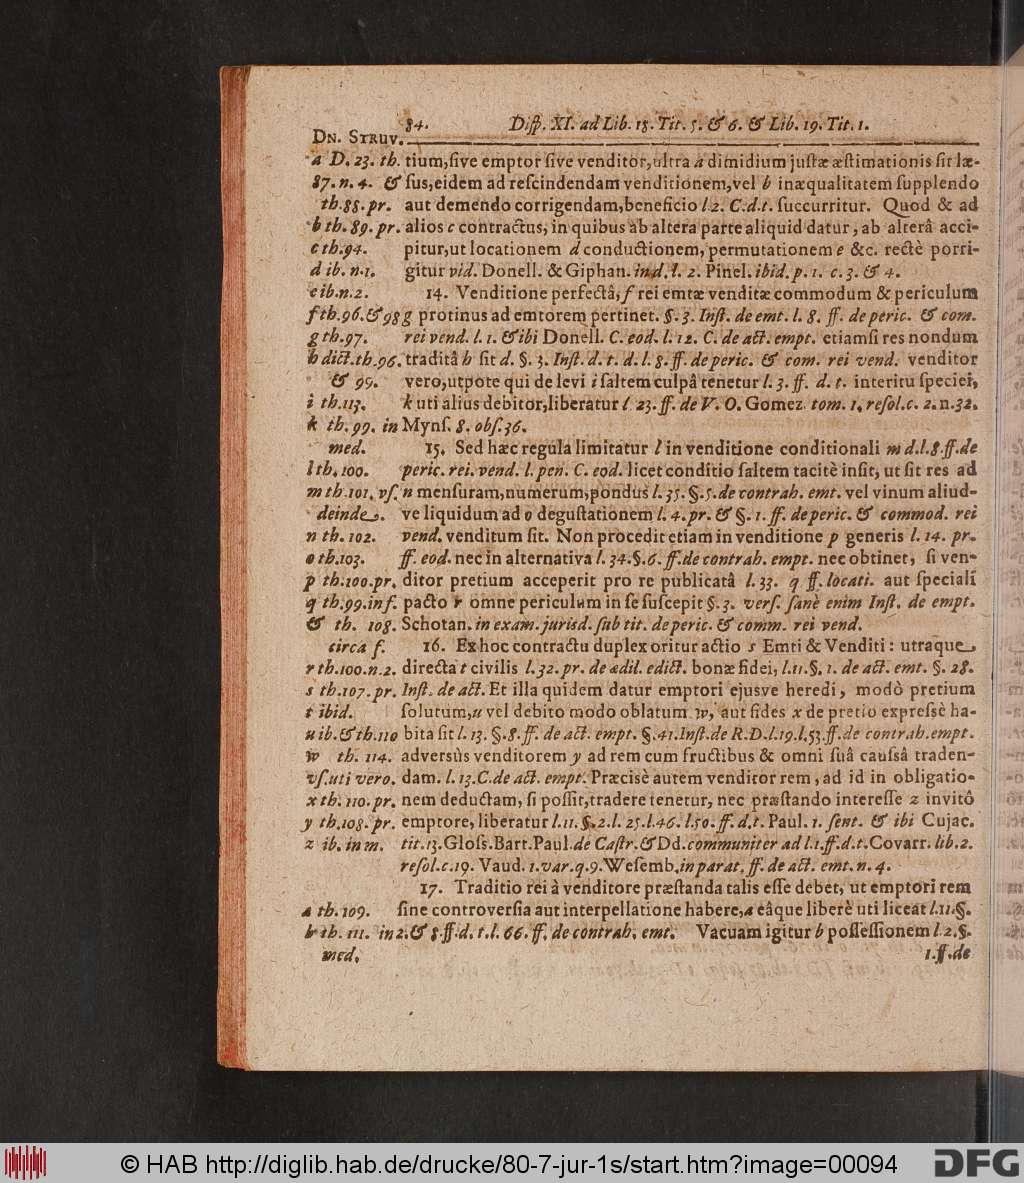 84. Disp. XI. ad Lib. 18. Tit. 5. & 6. & Lib. 19. Tit. 1.
DN. STRUV.
a D. 23. th. tium,ſive emptor ſive venditor,ultra a dimidium juſtæ æſtimationis ſit læ-
87. n. 4. & ſus,eidem ad reſcindendam venditionem,vel b inæqualitatem ſupplendo
th. 88. pr. aut demendo corrigendam,beneficio l 2. C.d.t. ſuccurritur. Quod & ad
b th. 89. pr. alios c contractus, in quibus ab altera parte aliquid datur, ab alterâ acci-
c th.94. pitur,ut locationem d conductionem, permutationem e &c. rectè porri-
d ib. n.1. gitur vid. Donell. & Giphan. in d. l. 2. Pinel. ibid. p. 1. c. 3. & 4.
e ib.n.2. 14. Venditione perfectâ, f rei emtæ venditæ commodum & periculum
f th.96.&98 g protinus ad emtorem pertinet. §. 3. Inſt. de emt. l. 8. ff. de peric. & com.
g th.97. rei vend. l. 1. & ibi Donell. C. eod. l. 12. C. de act. empt. etiamſi res nondum
h dict.th.96. traditâ h ſit d. §. 3. Inſt. d. t. d. l. 8. ff. de peric. & com. rei vend. venditor
& 99. vero,utpote qui de levi i ſaltem culpâ tenetur l. 3. ff. d. t. interitu ſpeciei,
i th.113. k uti alius debitor,liberatur l 23. ff. de V. O. Gomez. tom. 1. reſol.c. 2.n.32.
k th. 99. in Mynſ. 8. obſ. 36.
med. 15. Sed hæc regula limitatur l in venditione conditionali m d.l.8.ff.de
l th. 100. peric. rei. vend. l. pen. C. eod. licet conditio ſaltem tacitè inſit, ut ſit res ad
m th.101. vſ. n menſuram,numerum,pondus l. 35. §.5. de contrah. emt. vel vinum aliud-
deinde. ve liquidum ad o deguſtationem l. 4. pr. & §. 1. ff. de peric. & commod. rei
n th. 102. vend. venditum ſit. Non procedit etiam in venditione p generis l. 14. pr.
o th.103. ff. eod. nec in alternativa l. 34.§.6. ff.de contrah. empt. nec obtinet, ſi ven-
p th.100.pr. ditor pretium acceperit pro re publicatâ l. 33. q ff. locati. aut ſpeciali
q th.99.inf. pacto r omne periculum in ſe ſuſcepit §. 3. verſ. ſanè enim Inſt. de empt.
& th. 108. Schotan. in exam. jurisd. ſub tit. de peric. & comm. rei vend.
circa f. 16. Ex hoc contractu duplex oritur actio s Emti & Venditi: utraque
r th.100.n.2. directa t civilis l. 32. pr. de ædil. edict. bonæ fidei, l.11.§. 1. de act. emt. §. 28.
s th.107. pr. Inſt. de act. Et illa quidem datur emptori ejusve heredi, modò pretium
t ibid. ſolutum,u vel debito modo oblatum w, aut fides x de pretio expreſsè ha-
u ib.& th.110 bita ſit l. 13. §.8. ff. de act. empt. §.41. Inſt.de R.D.l.19.l.53.ff.de contrah.empt.
w th. 114. adversùs venditorem y ad rem cum fructibus & omni ſuâ cauſsâ traden-
vſ. uti vero. dam. l. 13.C.de act. empt. Præcisè autem venditor rem, ad id in obligatio-
x th. 110. pr. nem deductam, ſi poſſit,tradere tenetur, nec præſtando intereſſe z invitô
y th.108. pr. emptore, liberatur l.11. §.2.l. 25.l.46. l.50. ff. d.t. Paul. 1. ſent. & ibi Cujac.
z ib. in m. tit.13.Gloſſ.Bart.Paul.de Caſtr.& Dd.communiter ad l.1.ff.d.t.Covarr. lib.2.
reſol.c.19. Vaud. 1.var.q.9. Weſemb. in parat. ff. de act. emt. n. 4.
17. Traditio rei à venditore præſtanda talis eſſe debet, ut emptori rem
a th. 109. ſine controverſia aut interpellatione habere,a eâque liberè uti liceat l.11.§.
b th. 111. in 2.& 8.ff.d. t.l. 66. ff. de contrah. emt. Vacuam igitur b poſſeſſionem l 2.§.
med. 1.ff.de
© HAB http://diglib.hab.de/drucke/80-7-jur-1s/start.htm?image=00094
DFG